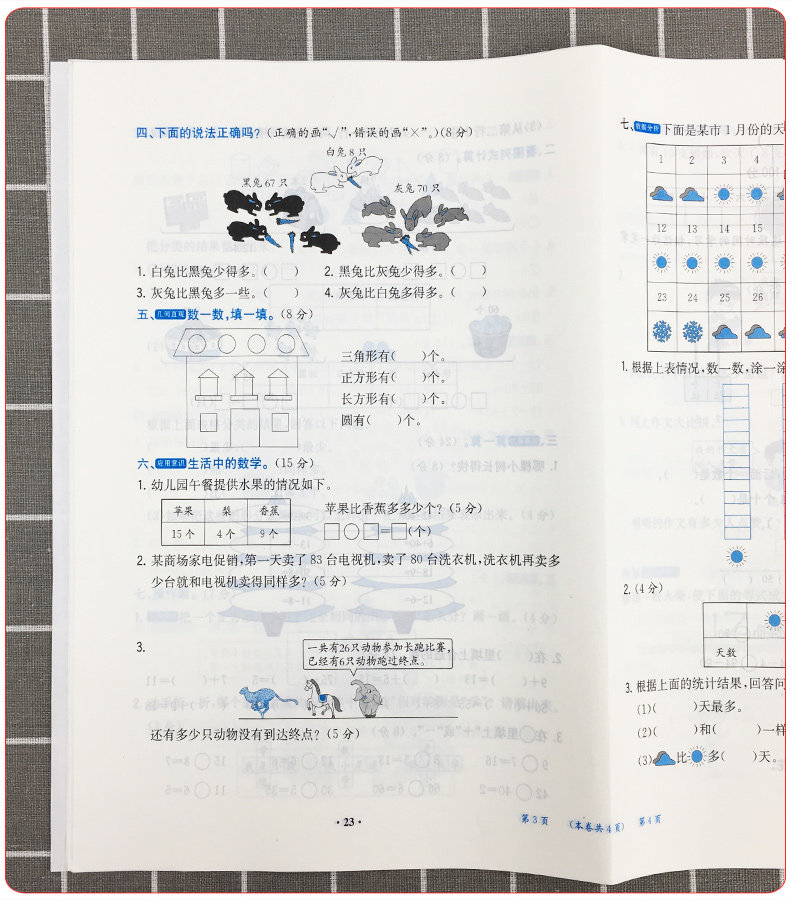 四、下面的说法正确吗?(正确的画“√”,错误的画“×”。)(8分)
白兔8只
黑兔67只
灰兔70只
1. 白兔比黑兔少得多。(　　)　2. 黑兔比灰兔少得多。(　　)
3. 灰兔比黑兔多一些。(　　)　4. 灰兔比白兔多得多。(　　)
五、几何直观 数一数,填一填。(8分)
三角形有(　　)个。
正方形有(　　)个。
长方形有(　　)个。
圆有(　　)个。
六、应用意识 生活中的数学。(15分)
1. 幼儿园午餐提供水果的情况如下。
苹果 梨 香蕉
15个 4个 9个
苹果比香蕉多多少个?(5分)
□○□=□(个)
2. 某商场家电促销,第一天卖了83台电视机,卖了80台洗衣机,洗衣机再卖多
少台就和电视机卖得同样多?(5分)
3.
一共有26只动物参加长跑比赛,
已经有6只动物跑过终点。
还有多少只动物没有到达终点?(5分)
·23·
第3页 (本卷共4页) 第4页
七、数据分析 下面是某市1月份的天
1 2 3 4
12 13 14 15
23 24 25 26
1. 根据上表情况,数一数,涂一涂
2. (4分)
天数
3. 根据上面的统计结果,回答问
(1)(　　)天最多。
(2)(　　)和(　　)一样
(3) 比 多(　　)天。